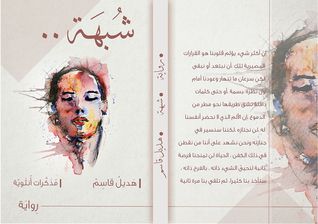 شُبهَة ..
هَديلْ قَاسِمْ
مُذكّرات أُنثويّة
رِوايَة
رواية • شبهة • هديل قاسم
إن أكثر شيء يؤلم قلوبنا هو القرارات
المصيرية تلك أن نبتعد أو نبقى
لكن سرعان ما تنهار وعودنا أمام
أي نظرة بسمة أو حتى كلمات
تشق طريقها نحو مطر من
الدموع إن الألم الذي لا نحضر أنفسنا
له لن نجتازه لكننا سنسير في
جنازته ونحن نشهد على أننا من نقطن
في ذلك الكفن ، الحياة لن تمنحنا فرصة
ثانية لنعيش الشيء ذاته ، بالفرح ذاته ،
سنأخذ بنا كثيرا، ثم تلقي بنا مرة ثانية